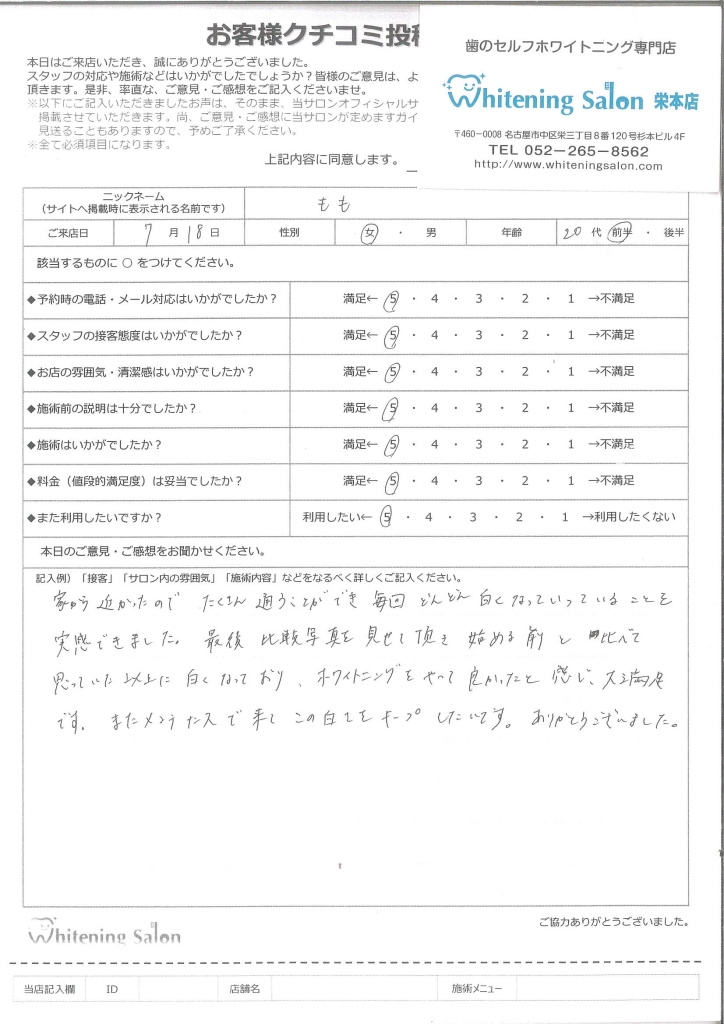 お客様クチコミ投稿
本日はご来店いただき、誠にありがとうございました。
スタッフの対応や施術などはいかがでしたでしょうか？皆様のご意見は、よ
頂きます。是非、率直な、ご意見・ご感想をご記入くださいませ。
※以下にご記入いただきましたお声は、そのまま、当サロンオフィシャルサ
掲載させていただきます。尚、ご意見・ご感想に当サロンが定めますガイ
見送ることもありますので、予めご了承ください。
※全て必須項目になります。
上記内容に同意します。
歯のセルフホワイトニング専門店
Whitening Salon 栄本店
〒460-0008 名古屋市中区栄三丁目8番120号杉本ビル4F
TEL 052-265-8562
http://www.whiteningsalon.com
ニックネーム
（サイトへ掲載時に表示される名前です） もも
ご来店日 7 月 18 日 性別 女 ・ 男 年齢 20 代 前半 ・ 後半
該当するものに ○ をつけてください。
◆予約時の電話・メール対応はいかがでしたか？ 満足← 5 ・ 4 ・ 3 ・ 2 ・ 1 →不満足
◆スタッフの接客態度はいかがでしたか？ 満足← 5 ・ 4 ・ 3 ・ 2 ・ 1 →不満足
◆お店の雰囲気・清潔感はいかがでしたか？ 満足← 5 ・ 4 ・ 3 ・ 2 ・ 1 →不満足
◆施術前の説明は十分でしたか？ 満足← 5 ・ 4 ・ 3 ・ 2 ・ 1 →不満足
◆施術はいかがでしたか？ 満足← 5 ・ 4 ・ 3 ・ 2 ・ 1 →不満足
◆料金（値段的満足度）は妥当でしたか？ 満足← 5 ・ 4 ・ 3 ・ 2 ・ 1 →不満足
◆また利用したいですか？ 利用したい← 5 ・ 4 ・ 3 ・ 2 ・ 1 →利用したくない
本日のご意見・ご感想をお聞かせください。
記入例）「接客」「サロン内の雰囲気」「施術内容」などをなるべく詳しくご記入ください。
家から近かったので たくさん通うことができ 毎回 どんどん 白くなっていっていることを
実感できました。最後 比較写真を見せて頂き 始める前 と 比べて
思っていた以上に 白くなっており、ホワイトニングをやって 良かったと 感じ、大満足
です。またメンテナンスで来て この白さをキープ したいです。ありがとうございました。
ご協力ありがとうございました。
Whitening Salon
当店記入欄 ID 店舗名 施術メニュー